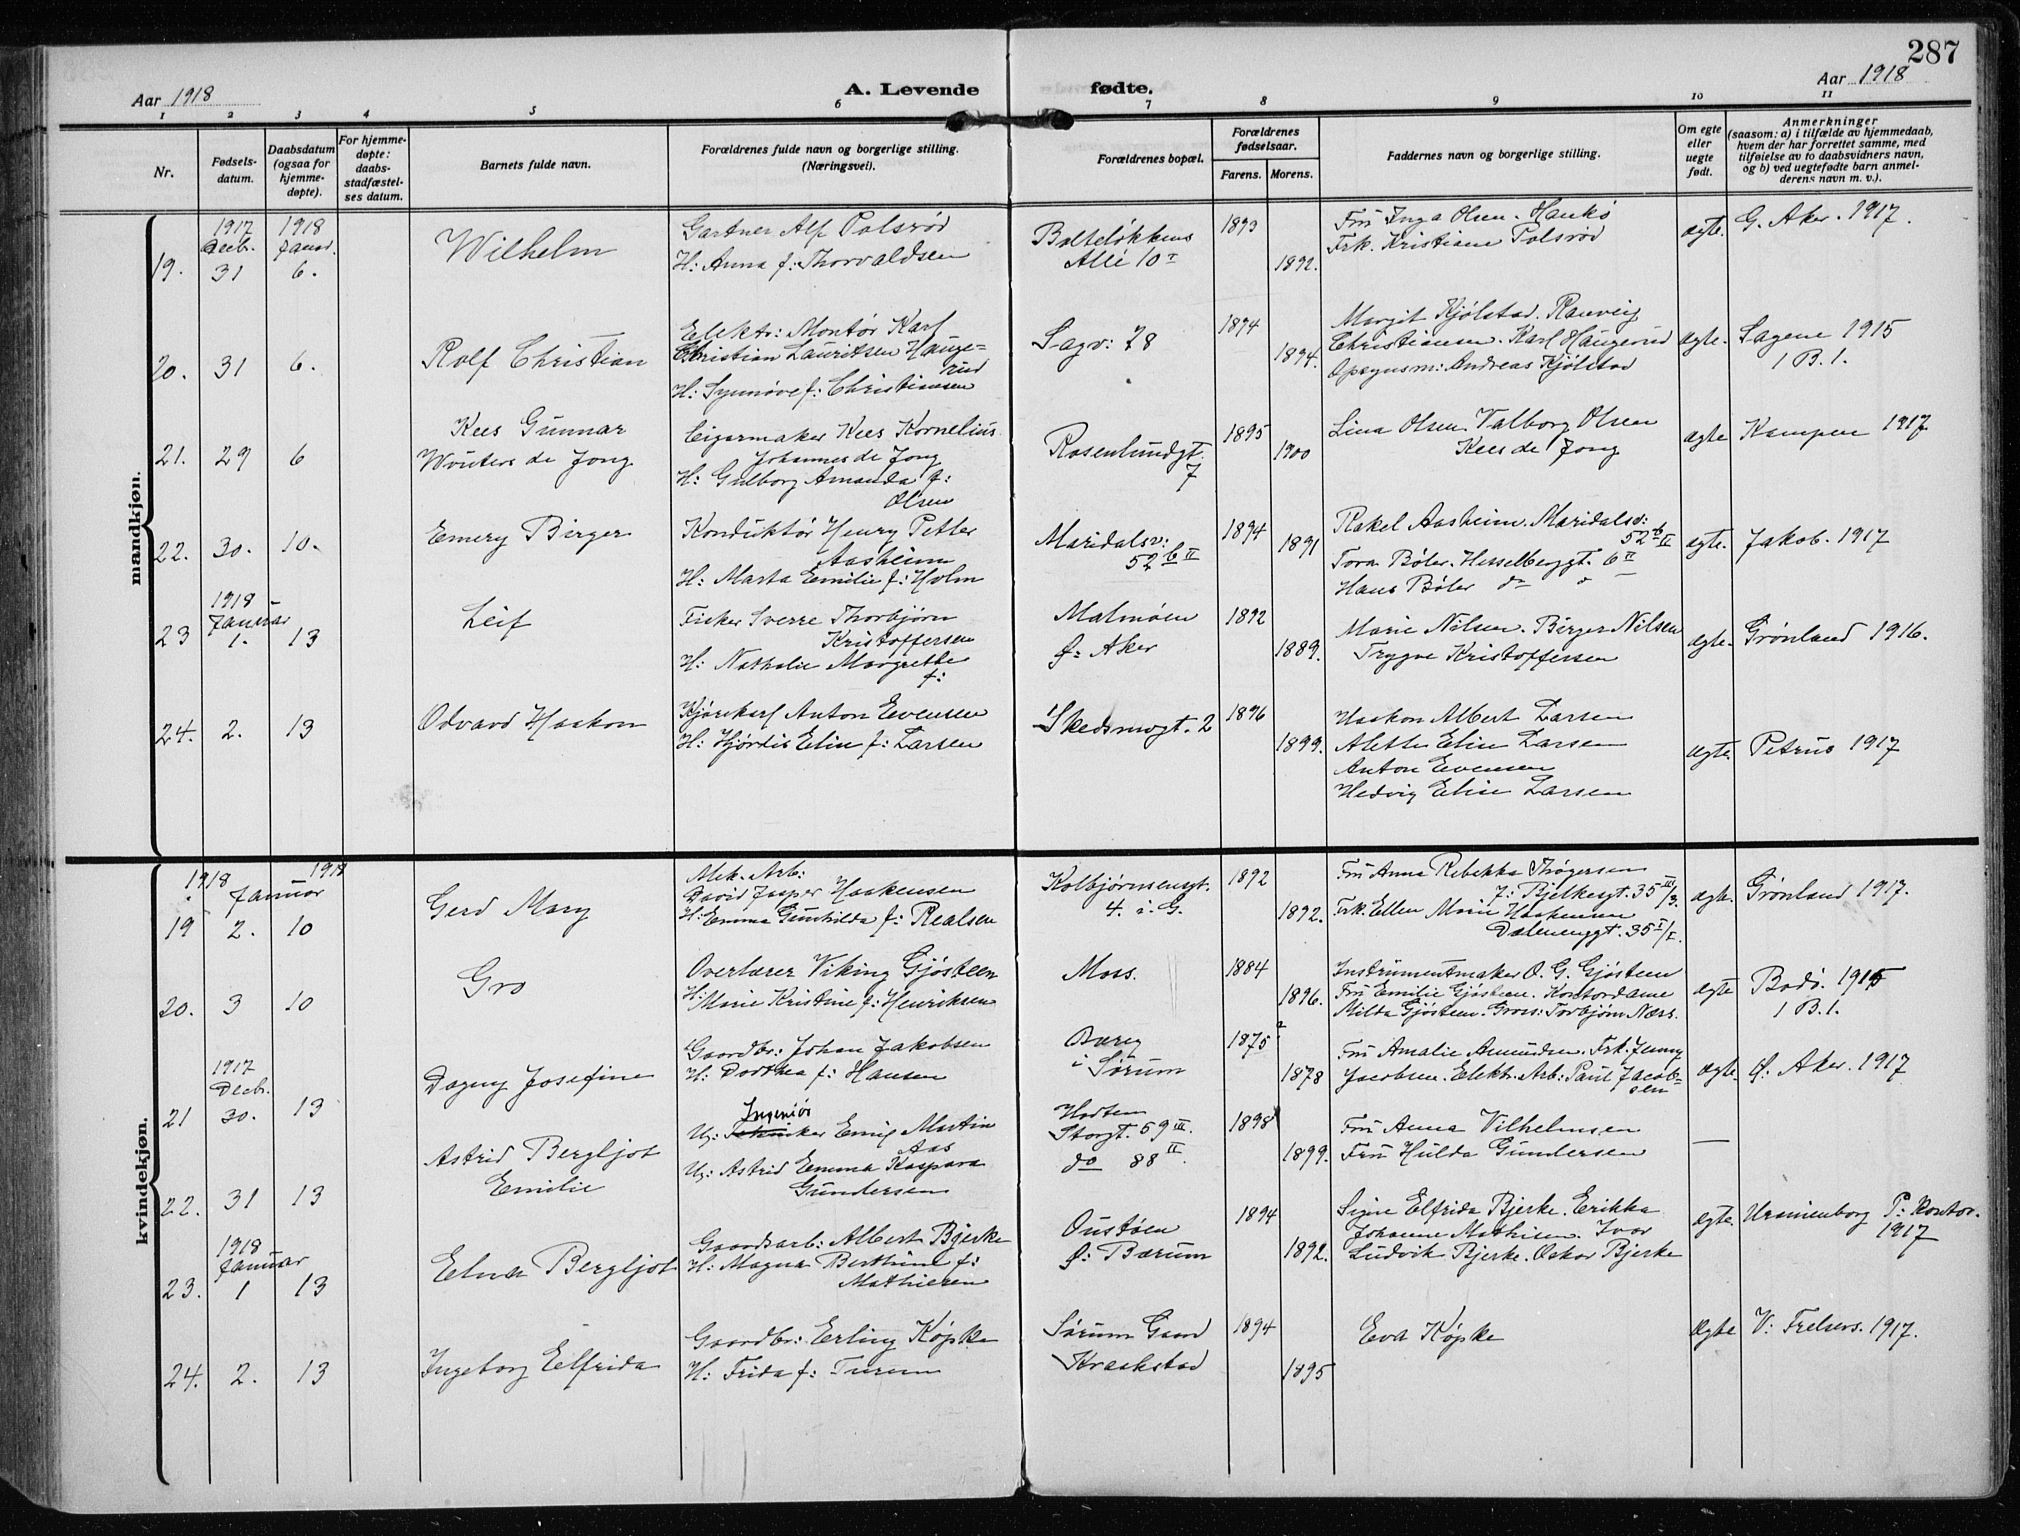 287
Aar 1918
A. Levende fødte.
Aar 1918
1 2 3 4 5 6 7 8 9 10 11
Nr.
Fødsels-
datum.
Daabsdatum
(ogsaa for
hjemme-
døpte).
For hjemme-
døpte:
daabs-
stadfæstel-
ses datum.
Barnets fulde navn.
Forældrenes fulde navn og borgerlige stilling.
(Næringsvei).
Forældrenes bopæl.
Forældrenes
fødselsaar.
Farens. Morens.
Faddernes navn og borgerlige stilling.
Om egte
eller
uegte
født.
Anmerkninger
(saasom: a) i tilfælde av hjemmedaab,
hvem der har forrettet samme, med
tilføielse av to daabsvidners navn,
og b) ved uegtefødte barn anmel-
derens navn m. v.).
mandkjøn.
1917 1918
Decb. Januar
19. 31 6.
Wilhelm
Gartner Alf Polsrød
H: Anna f: Thorvaldsen
Bolteløkkens
Allé 10
1893
1892.
Fru Inga Olsen. Hankø
Frk. Kristiane Polsrød
ægte.
G. Aker. 1917.
20. 31 6.
Rolf Christian
Elektr: Montør Karl
Christian Lauritsen Hauge=
rud
H: Synnøve f: Christiansen
Sagv: 78
1894
1894.
Margit Kjølstad. Ranveig
Christiansen. Karl Haugerud
Opsynsm: Andreas Kjølstad
ægte.
Sagene 1915
1 B. 1.
21. 29 6
Kees Gunnar
Wouters de Jong
Cigarmaker Kees Kornelius
Johannes de Jong
H: Gulborg Amanda f:
Olsen
Rosenlundgt.
7
1895
1900
Lina Olsen. Valborg Olsen
Kees de Jong
ægte
Kampen 1917.
22. 30. 10.
Emery Birger
Konduktør Henry Petter
Aasheim
H: Marta Emilie f: Holm
Maridalsv:
52 b II
1894
1891
Rakel Aasheim. Maridalsv:
52 b II
Tora Bøler. Hesselberggt. 6 II
Hans Bøler do
ægte.
Jakob. 1917
1918
Januar
23 1. 13
Leif
Fisker Sverre Thorbjørn
Kristoffersen
H: Nathalie Margrethe
f:
Malmøen
Ø: Aker
1892
1889.
Marie Nilsen. Birger Nilsen
Trygve Kristoffersen
ægte.
Grønland 1916.
24. 2. 13
Odvard Haakon
Kjørekarl Anton Evensen
H: Hjørdis Elin f: Larsen
Skedsmogt. 2
1896
1899.
Haakon Albert Larsen
Alette Elise Larsen
Anton Evensen
Hedvig Elise Larsen
ægte.
Petrus 1917
kvindekjøn.
1918 1918
Januar
19 2. 10
Gerd Mary
Mek. Arb:
David Jasper Haakensen
H: Emma Gunhilda f: Realsen
Kolbjørnsensgt.
4. i. G.
1892
1892.
Fru Anna Rebekka Thøgersen
f: Bjelkesgt. 35 III/3.
Frk. Ellen Marie Haakensen
Dælenenggt. 35 I/I.
ægte.
Grønland 1917.
20. 3 10
Gro
Overlærer Viking Gjøsteen
H: Marie Kristine f: Henriksen
Moss.
1884
1896.
Instrumentmaker O. G. Gjøsteen
Fru Emilie Gjøsteen. Kontordame
Milda Gjøsteen. Gross: Torbjørn Næss.
ægte
Bodø. 1915
1 B. 1.
1917
Decb.
21 30. 13
Dagny Josefine
Gaardbr: Johan Jakobsen
H: Dorthea f: Hansen
Bærg
i Sørum
1875
1878
Fru Amalie Amundsen. Frk. Jenny
Jacobsen. Elektr. Arb: Paul Jacob-
sen
ægte.
Ø: Aker. 1917
22. 31 13
Astrid Bergljot
Emilie
Ingeniør
Ug: Tekniker Emil Martin
Aas
Ug: Astrid Emma Kaspara
Gundersen
Horten
Storgt. 59 III.
do 88 II.
1898
1899.
Fru Anna Vilhelmsen
Fru Hulda Gundersen
—
1918
Januar
23. 1 13
Edna Bergljot
Gaardsarb: Albert Bjerke
H: Magna Berthine f:
Mathiesen
Oustøen
Ø: Bærum
1894
1892.
Signe Elfrida Bjerke. Erikka
Johanne Mathisen. Ivar
Ludvik Bjerke. Oskar Bjerke
ægte.
Uranienborg P: kontor.
1917
24. 2. 13
Ingeborg Elfrida
Gaardbr: Erling Køpke
H: Frida f: Turum
Sørum Gaard
Kraakstad
1894
1895
Eva Køpke
ægte
V: Frelsers. 1917.